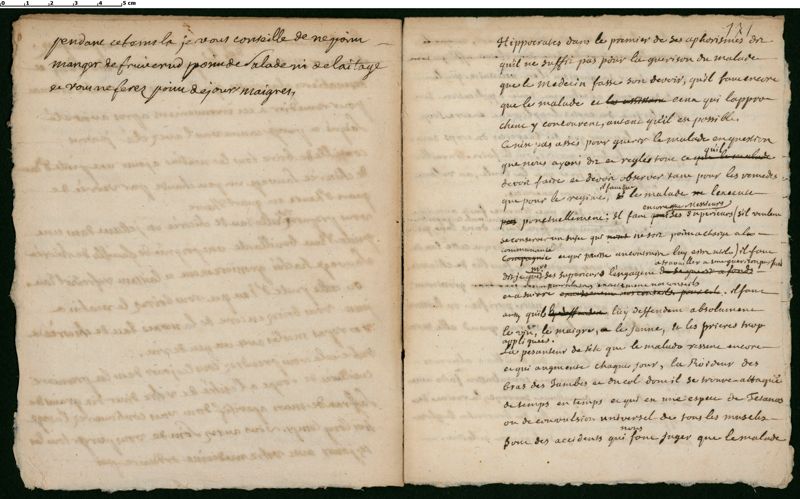 0 1 2 3 4 5 cm
pendant ce tems la je vous conseille de ne point
manger de fruit crud point de salade ni de laitage
et vous ne ferez point de jour maigres,
131
Hippocrates dans le premier de ses aphorismes dit
qu'il ne suffit pas pour la guerison du malade
que le Medecin fasse son devoir, qu'il faut encore
que le malade et ceux qui l'appro-
chent y concourent, autant qu'il est possible.
Ce n'est pas assés pour guerir le malade en question
que nous ayons dit et reglés tout ce qu'il
devoit faire et devoit observer tant pour les remedes
que pour le regime, il faut que le malade l'execute
ponctuellement; il faut encore Messieurs
des Superieurs s'ils veulent
se conserver un sujet qui ne soit point a charge a la
communauté
et qui puisse un jour luy estre utile) il faut
dis je que Mrs des Superieurs l'engagent a travailler a une guerison parfaite
et a suivre exactement nos conseils. il faut
qu'ils luy deffendent absolument
le vin, le maigre, le Jeune, et les prieres trop
appliquées.
La pesanteur de tete que le malade ressent encore
et qui augmente chaque jour, la Roideur des
bras des Jambes et du col dont il se trouve attaqué
de temps en temps et qui est une espece de Tetanos
ou de convulsion universel de tous les muscles
sont des accidents qui nous font juger que le malade